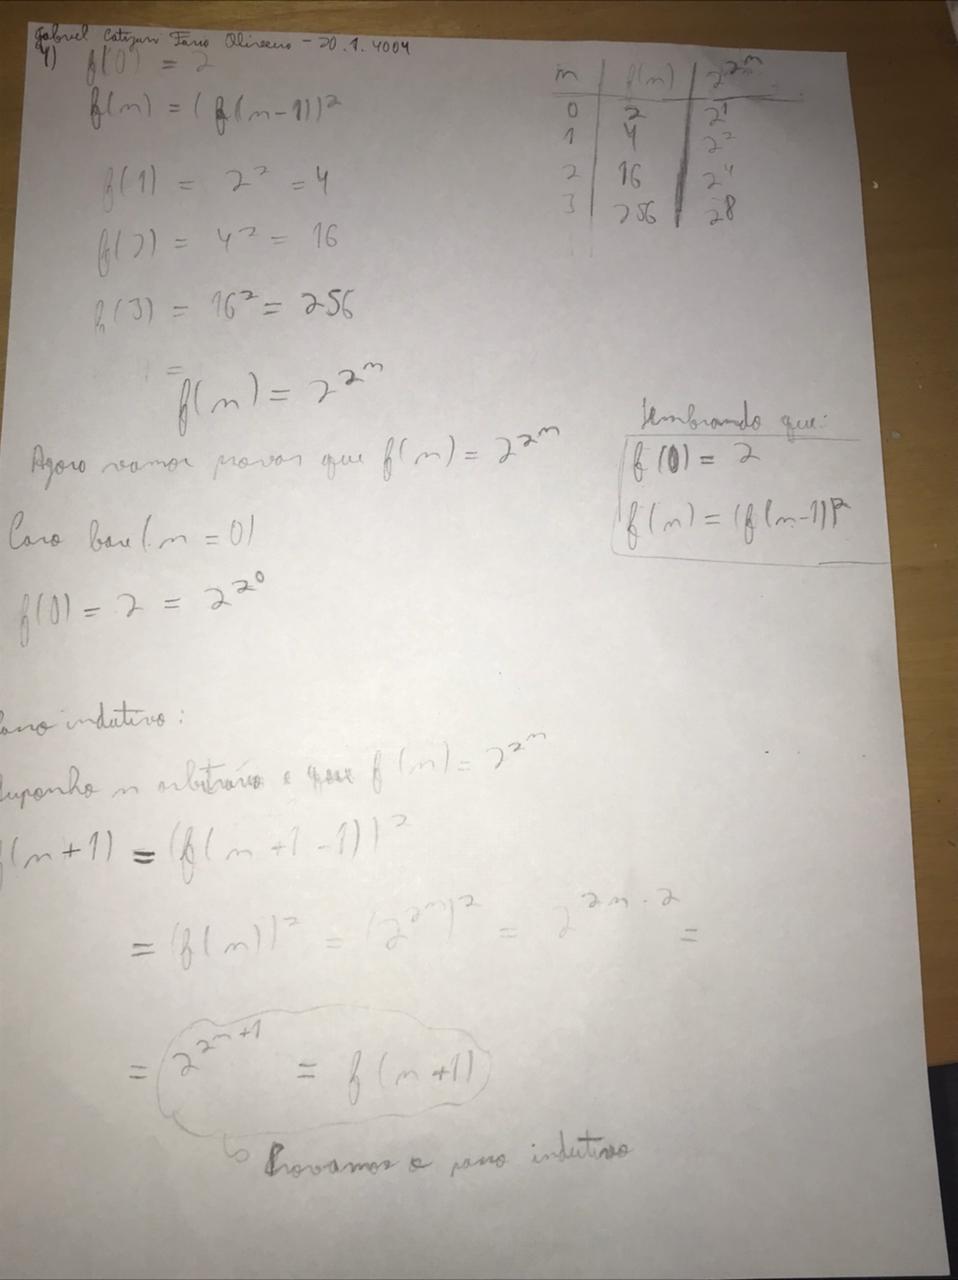 Gabriel Catizani Faria Oliveira - 20.1.4004
4) f(0) = 2
f(n) = (f(n-1))²
f(1) = 2² = 4
f(2) = 4² = 16
f(3) = 16² = 256
=
f(n) = 2^2^n
n | f(n) | 2^2^n
0 | 2 | 2¹
1 | 4 | 2²
2 | 16 | 2⁴
3 | 256 | 2⁸
Agora vamos provar que f(n) = 2^2^n
Lembrando que:
f(0) = 2
f(n) = (f(n-1))²
Caso base (n = 0)
f(0) = 2 = 2^2^0
Passo indutivo:
Suponha n arbitrário e que f(n) = 2^2^n
f(n+1) = (f(n+1-1))²
= (f(n))² = (2^2^n)² = 2^2^n · 2 =
= 2^2^n+1 = f(n+1)
Provamos o passo indutivo